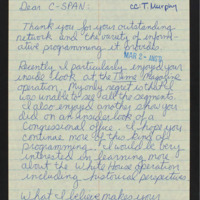 Dear C-SPAN:
cc T. Murphy
Thank you for your outstanding
network and the variety of inform-
ative programming it provides.
MAR 2
Recently I particularly enjoyed your
inside look at the Time Magazine
operation. My only regret is that I
was unable to see all the segments.
I also enjoyed another show you
did on an inside look of a
Congressional office. I hope you
continue more of this kind of
programming. I would be very
interested in learning more
about the White House operation
including historical perspectives.
What I believe makes your